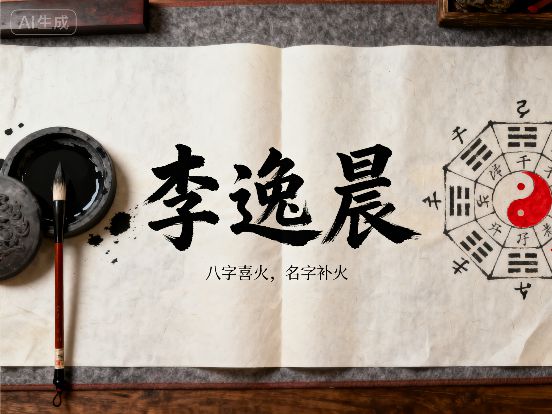 AI生成
李逸晨
八字喜火，名字补火